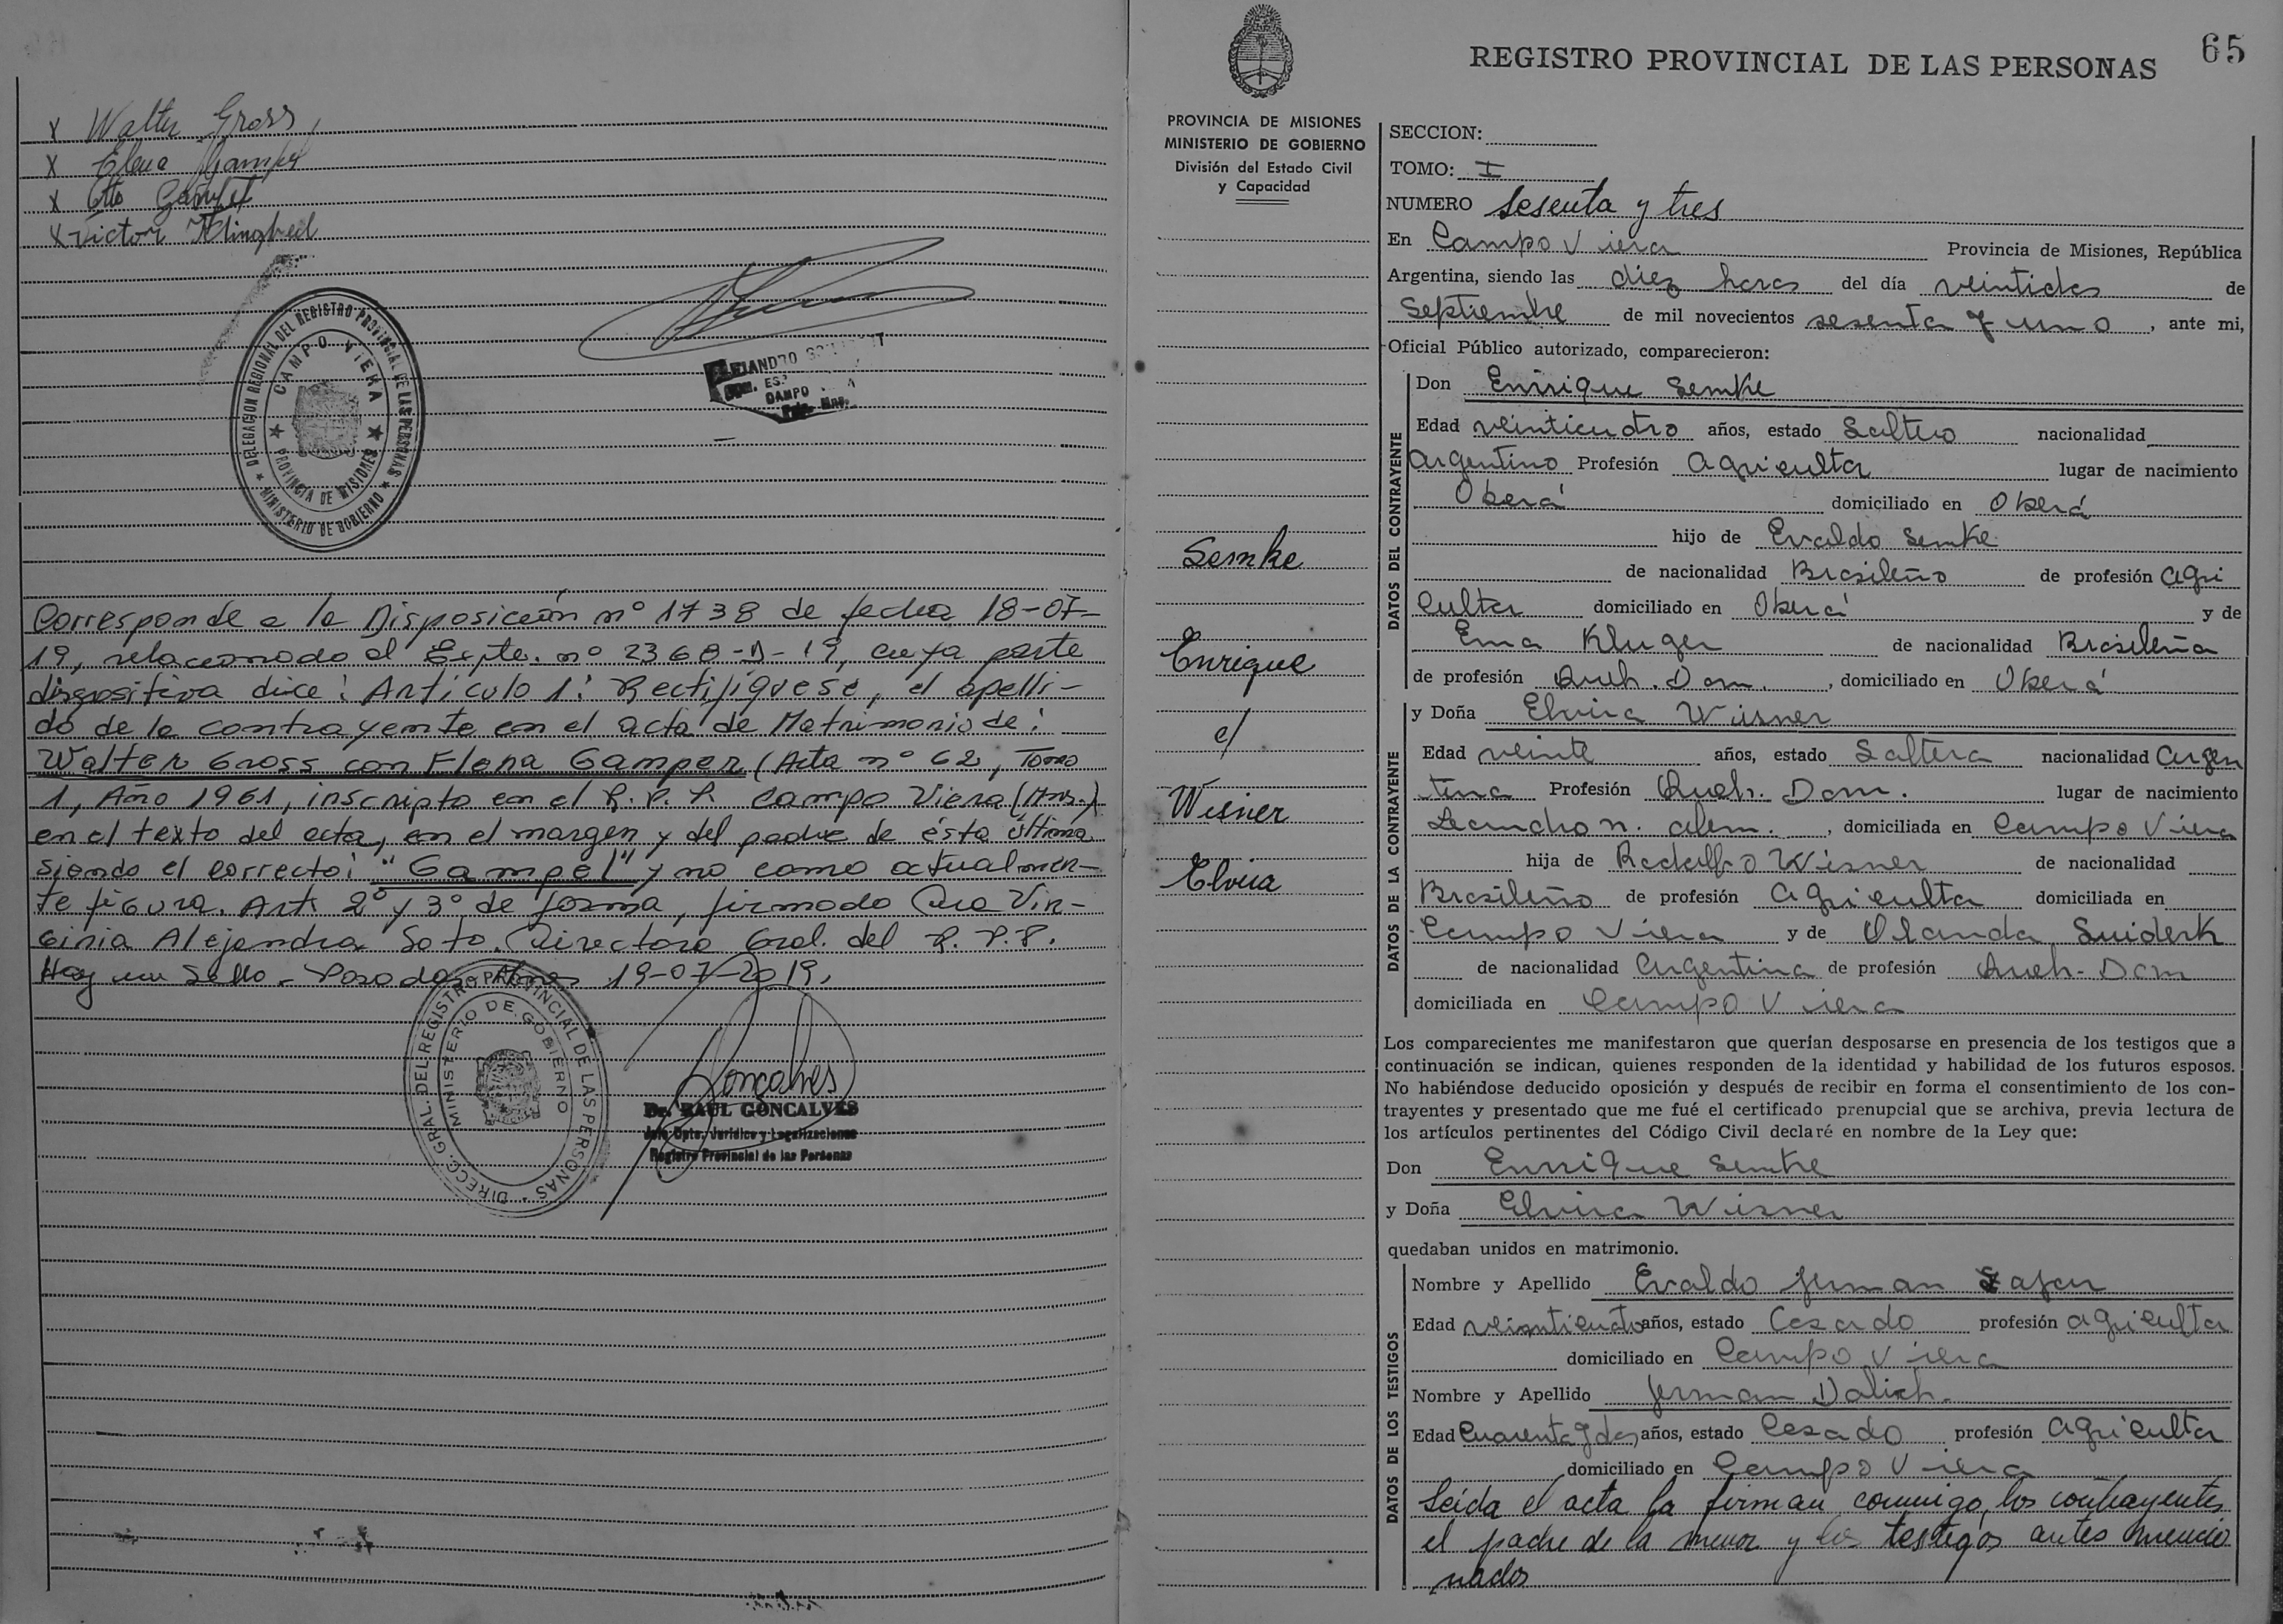 x Walter Gross
x Elena Gamper
x Otto Gampel
x Victor Klingbeil
DELEGACION REGIONAL DEL REGISTRO PROVINCIAL DE LAS PERSONAS
★ MINISTERIO DE GOBIERNO ★
CAMPO VIERA
★ PROVINCIA DE MISIONES ★
CAMPO
Corresponde a la Disposición nº 1738 de fecha 18-07-
19, relacionado al Expte. nº 2368-D-19, cuya parte
dispositiva dice: Artículo 1: Rectifíquese, el apelli-
do de la contrayente en el acta de Matrimonio de:
Walter Gross con Elena Gamper (Acta nº 62, Tomo
1, Año 1961, inscripto en el R. P. P. Campo Viera (Mnes.)
en el texto del acta, en el margen y del padre de ésta última
siendo el correcto: "Gampel" y no como actualmen-
te figura. Art. 2º y 3º de forma, firmado Dra Vir-
ginia Alejandra Soto. Directora Gral. del R. P. P.
Hay un Sello - Posadas, Mnes 19-07-2019.
DIRECC. GRAL. DEL REGISTRO PROVINCIAL DE LAS PERSONAS
MINISTERIO DE GOBIERNO
Goncalves
Dr. RAUL GONCALVES
Jefe Dpto. Jurídico y Legalizaciones
Registro Provincial de las Personas
65
REGISTRO PROVINCIAL DE LAS PERSONAS
PROVINCIA DE MISIONES
MINISTERIO DE GOBIERNO
División del Estado Civil
y Capacidad
Semke
Enrique
c/
Wisner
Elvira
SECCION:
TOMO: I
NUMERO Sesenta y tres
En Campo Viera Provincia de Misiones, República
Argentina, siendo las diez horas del día veintidos de
Septiembre de mil novecientos sesenta y uno, ante mi,
Oficial Público autorizado, comparecieron:
DATOS DEL CONTRAYENTE
Don Enrrique Semke
Edad veinticuatro años, estado Soltero nacionalidad
Argentino Profesión Agricultor lugar de nacimiento
Oberá domiciliado en Oberá
hijo de Evaldo Semke
de nacionalidad Brasileño de profesión Agri
cultor domiciliado en Oberá y de
Ema Kluger de nacionalidad Brasileña
de profesión Queh. Dom., domiciliado en Oberá
DATOS DE LA CONTRAYENTE
y Doña Elvira Wisner
Edad veinte años, estado Soltera nacionalidad Argen
tina Profesión Queh. Dom. lugar de nacimiento
Leandro n. alem., domiciliada en Campo Viera
hija de Rodolfo Wisner de nacionalidad
Brasileño de profesión Agricultor domiciliada en
Campo Viera y de Olanda Suiderk
de nacionalidad Argentina de profesión Queh- Dom
domiciliada en Campo Viera
Los comparecientes me manifestaron que querían desposarse en presencia de los testigos que a
continuación se indican, quienes responden de la identidad y habilidad de los futuros esposos.
No habiéndose deducido oposición y después de recibir en forma el consentimiento de los con-
trayentes y presentado que me fué el certificado prenupcial que se archiva, previa lectura de
los artículos pertinentes del Código Civil declaré en nombre de la Ley que:
Don Enrrique Semke
y Doña Elvira Wisner
quedaban unidos en matrimonio.
DATOS DE LOS TESTIGOS
Nombre y Apellido Evaldo Jerman
Edad veinticuatro años, estado Casado profesión agricultor
domiciliado en Campo Viera
Nombre y Apellido Jerman Dalich.
Edad Cuarenta y dos años, estado Casado profesión Agricultor
domiciliado en Campo Viera
Leída el acta la firman conmigo, los contrayentes
el padre de la menor y los testigos antes mencio
nados